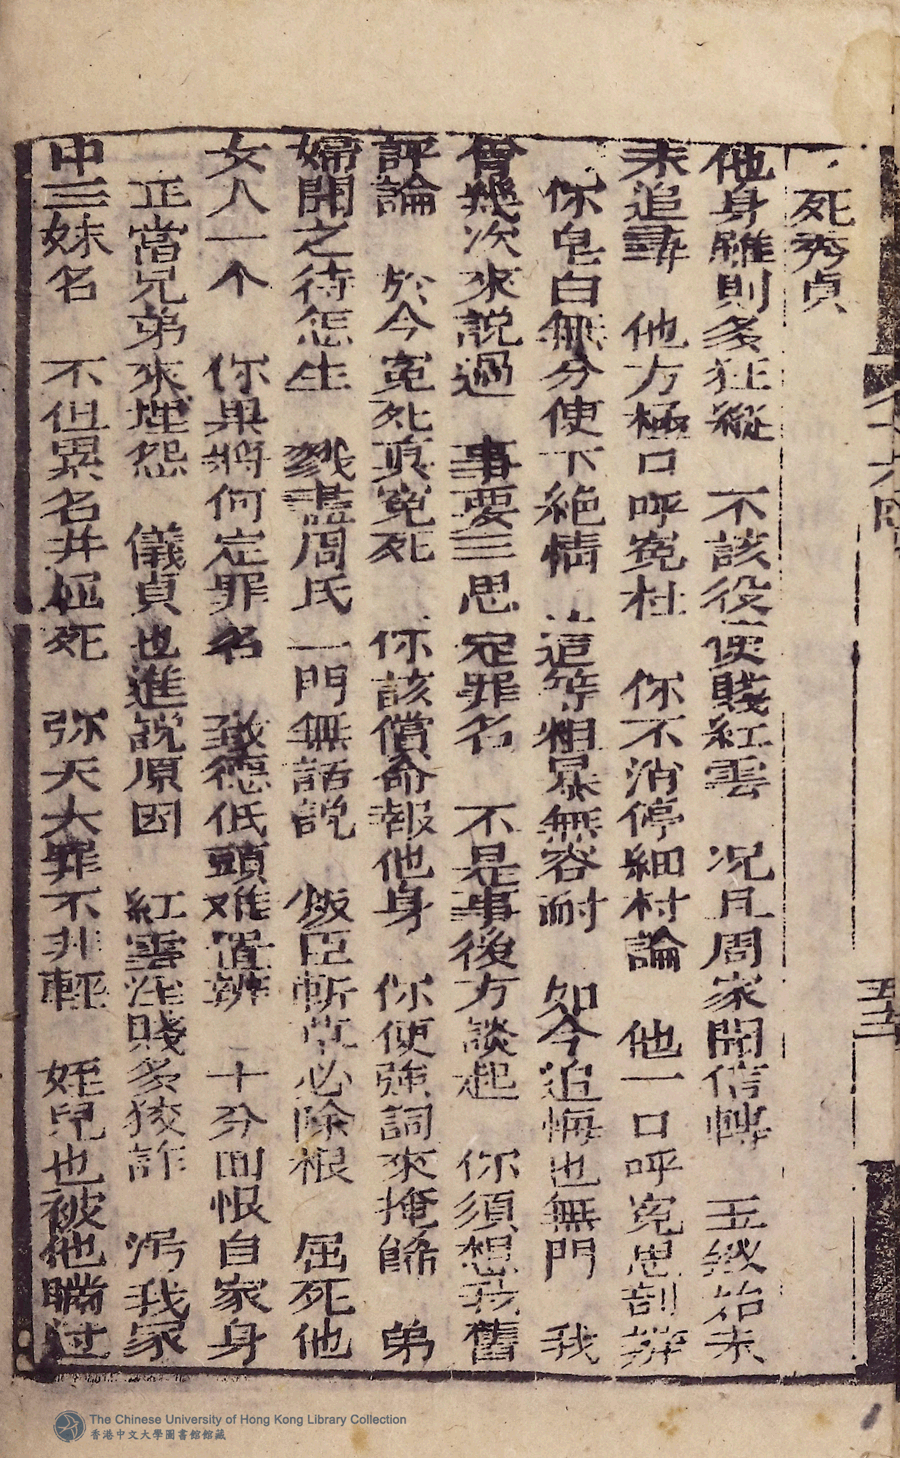 死秀貞
他身雖則多狂縱 不該役使賤紅雲 况凡周家開信轉 玉 始末
未追尋 他方極口呼寃枉 你不消停細村論 他一口呼寃思剖
你皂白無分使下絶情 這等粗暴無容耐 如今追悔也無門 我
曾幾次來説過 事要三思定罪名 不是事後方談起 你須想我舊
評論 於今寃死真寃死 你該償命報他身 你便強詞來掩飾 弟
婦開之待怎生 戮盡周氏一門無話説 叛臣斬草必除根 屈死他
女人一个 你果將何定罪名 致德低頭难置辨 十分囬恨自家身
正當兄弟來埋怨 儀貞也進説原因 紅雲淫賤多狡詐 汚我家
中三妹名 不但累名井枉死 弥天大罪不非輕 姪兒也被他瞞过
五五
The Chinese University of Hong Kong Library Collection
香港中文大學圖書館館藏